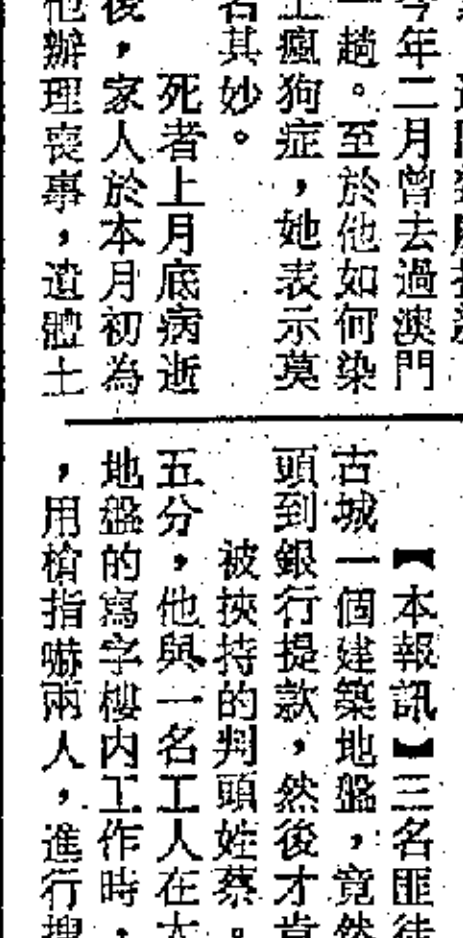 今年二月曾去過澳門
一趟。至於他如何染
上瘋狗症，她表示莫
名其妙。
死者上月底病逝
後，家人於本月初為
他辦理喪事，遺體土
【本報訊】三名匪徒
古城一個建築地盤，竟然
頭到銀行提款，然後才肯
被挾持的判頭姓蔡。
五分，他與一名工人在大
地盤的寫字樓內工作時，
，用槍指嚇兩人，進行搜